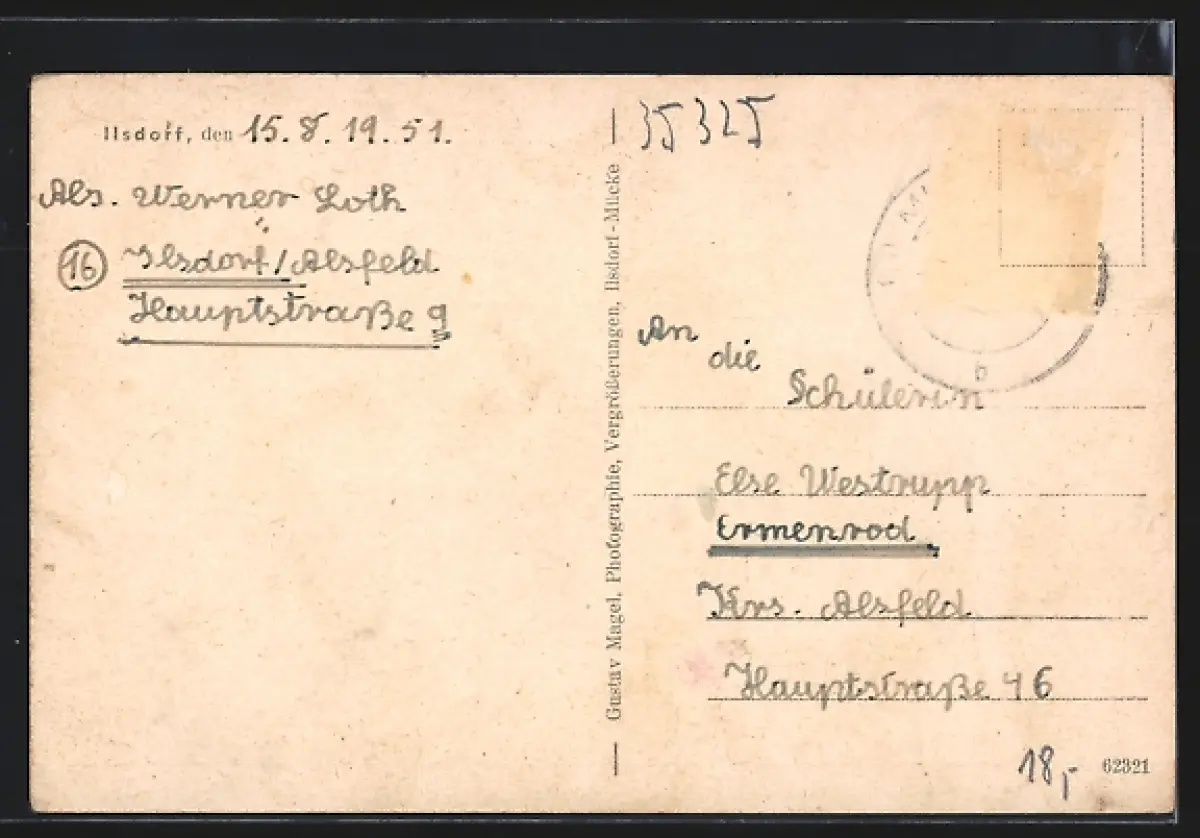 Ilsdorf, den 15.8.1951.
Abs. Werner Loth
16 Ilsdorf/Alsfeld
Hauptstraße 9
Gustav Magel, Photographie, Vergrößerungen, Ilsdorf-Mücke
35325
b
An
die
Schülerin
Else Westrupp
Ermenrod
Krs. Alsfeld
Hauptstraße 46
18,-
62321